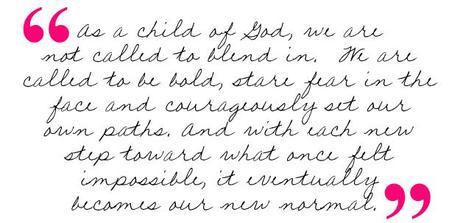 “As a child of God, we are
not called to blend in. We are
called to be bold, stare fear in the
face and courageously set our
own paths. And with each new
step toward what once felt
impossible, it eventually
becomes our new normal.”